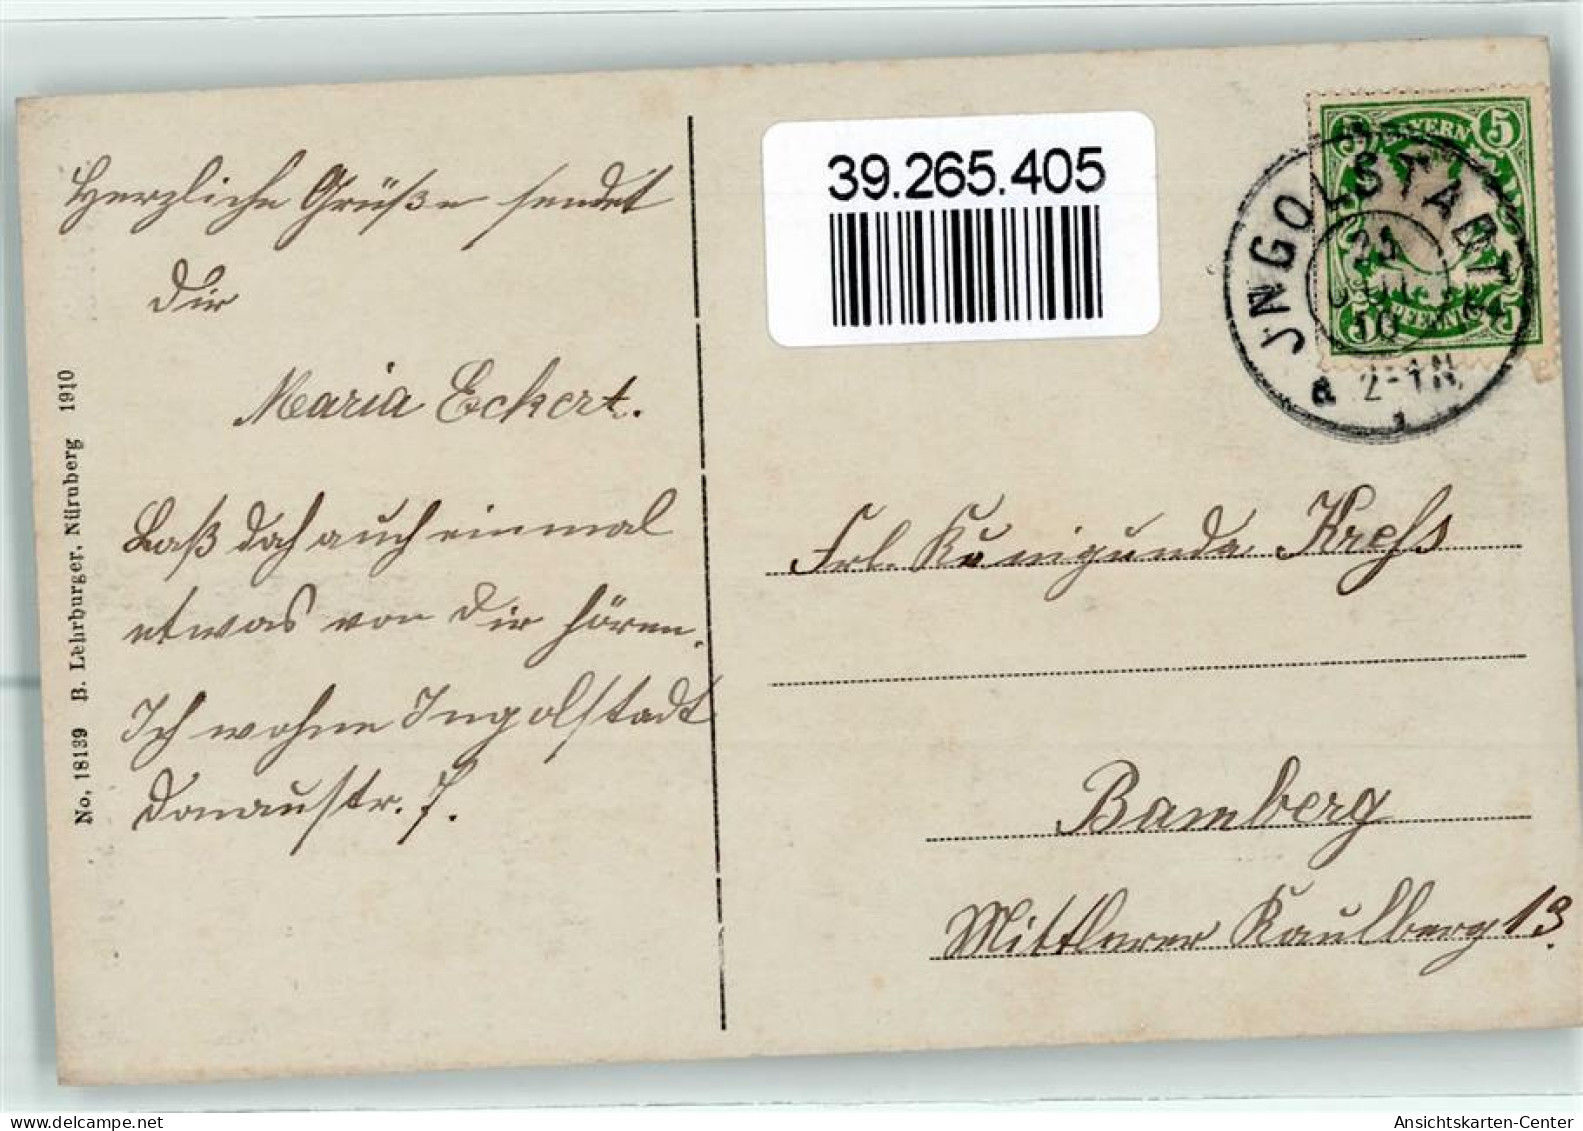 Herzliche Grüße sendet
Dir
Maria Eckert.
Laß doch auch einmal
etwas von Dir hören.
Ich wohne Ingolstadt
Donaustr. 7.
No. 18139 B. Lehrburger, Nürnberg 1910
39.265.405
BAYERN
5 5
5 5
PFENNIG
JNGOLSTADT
10
a 2-1N
Frl. Kunigunda Kreß
Bamberg
Mittlerer Kaulberg 13.
www.delcampe.net
Ansichtskarten-Center